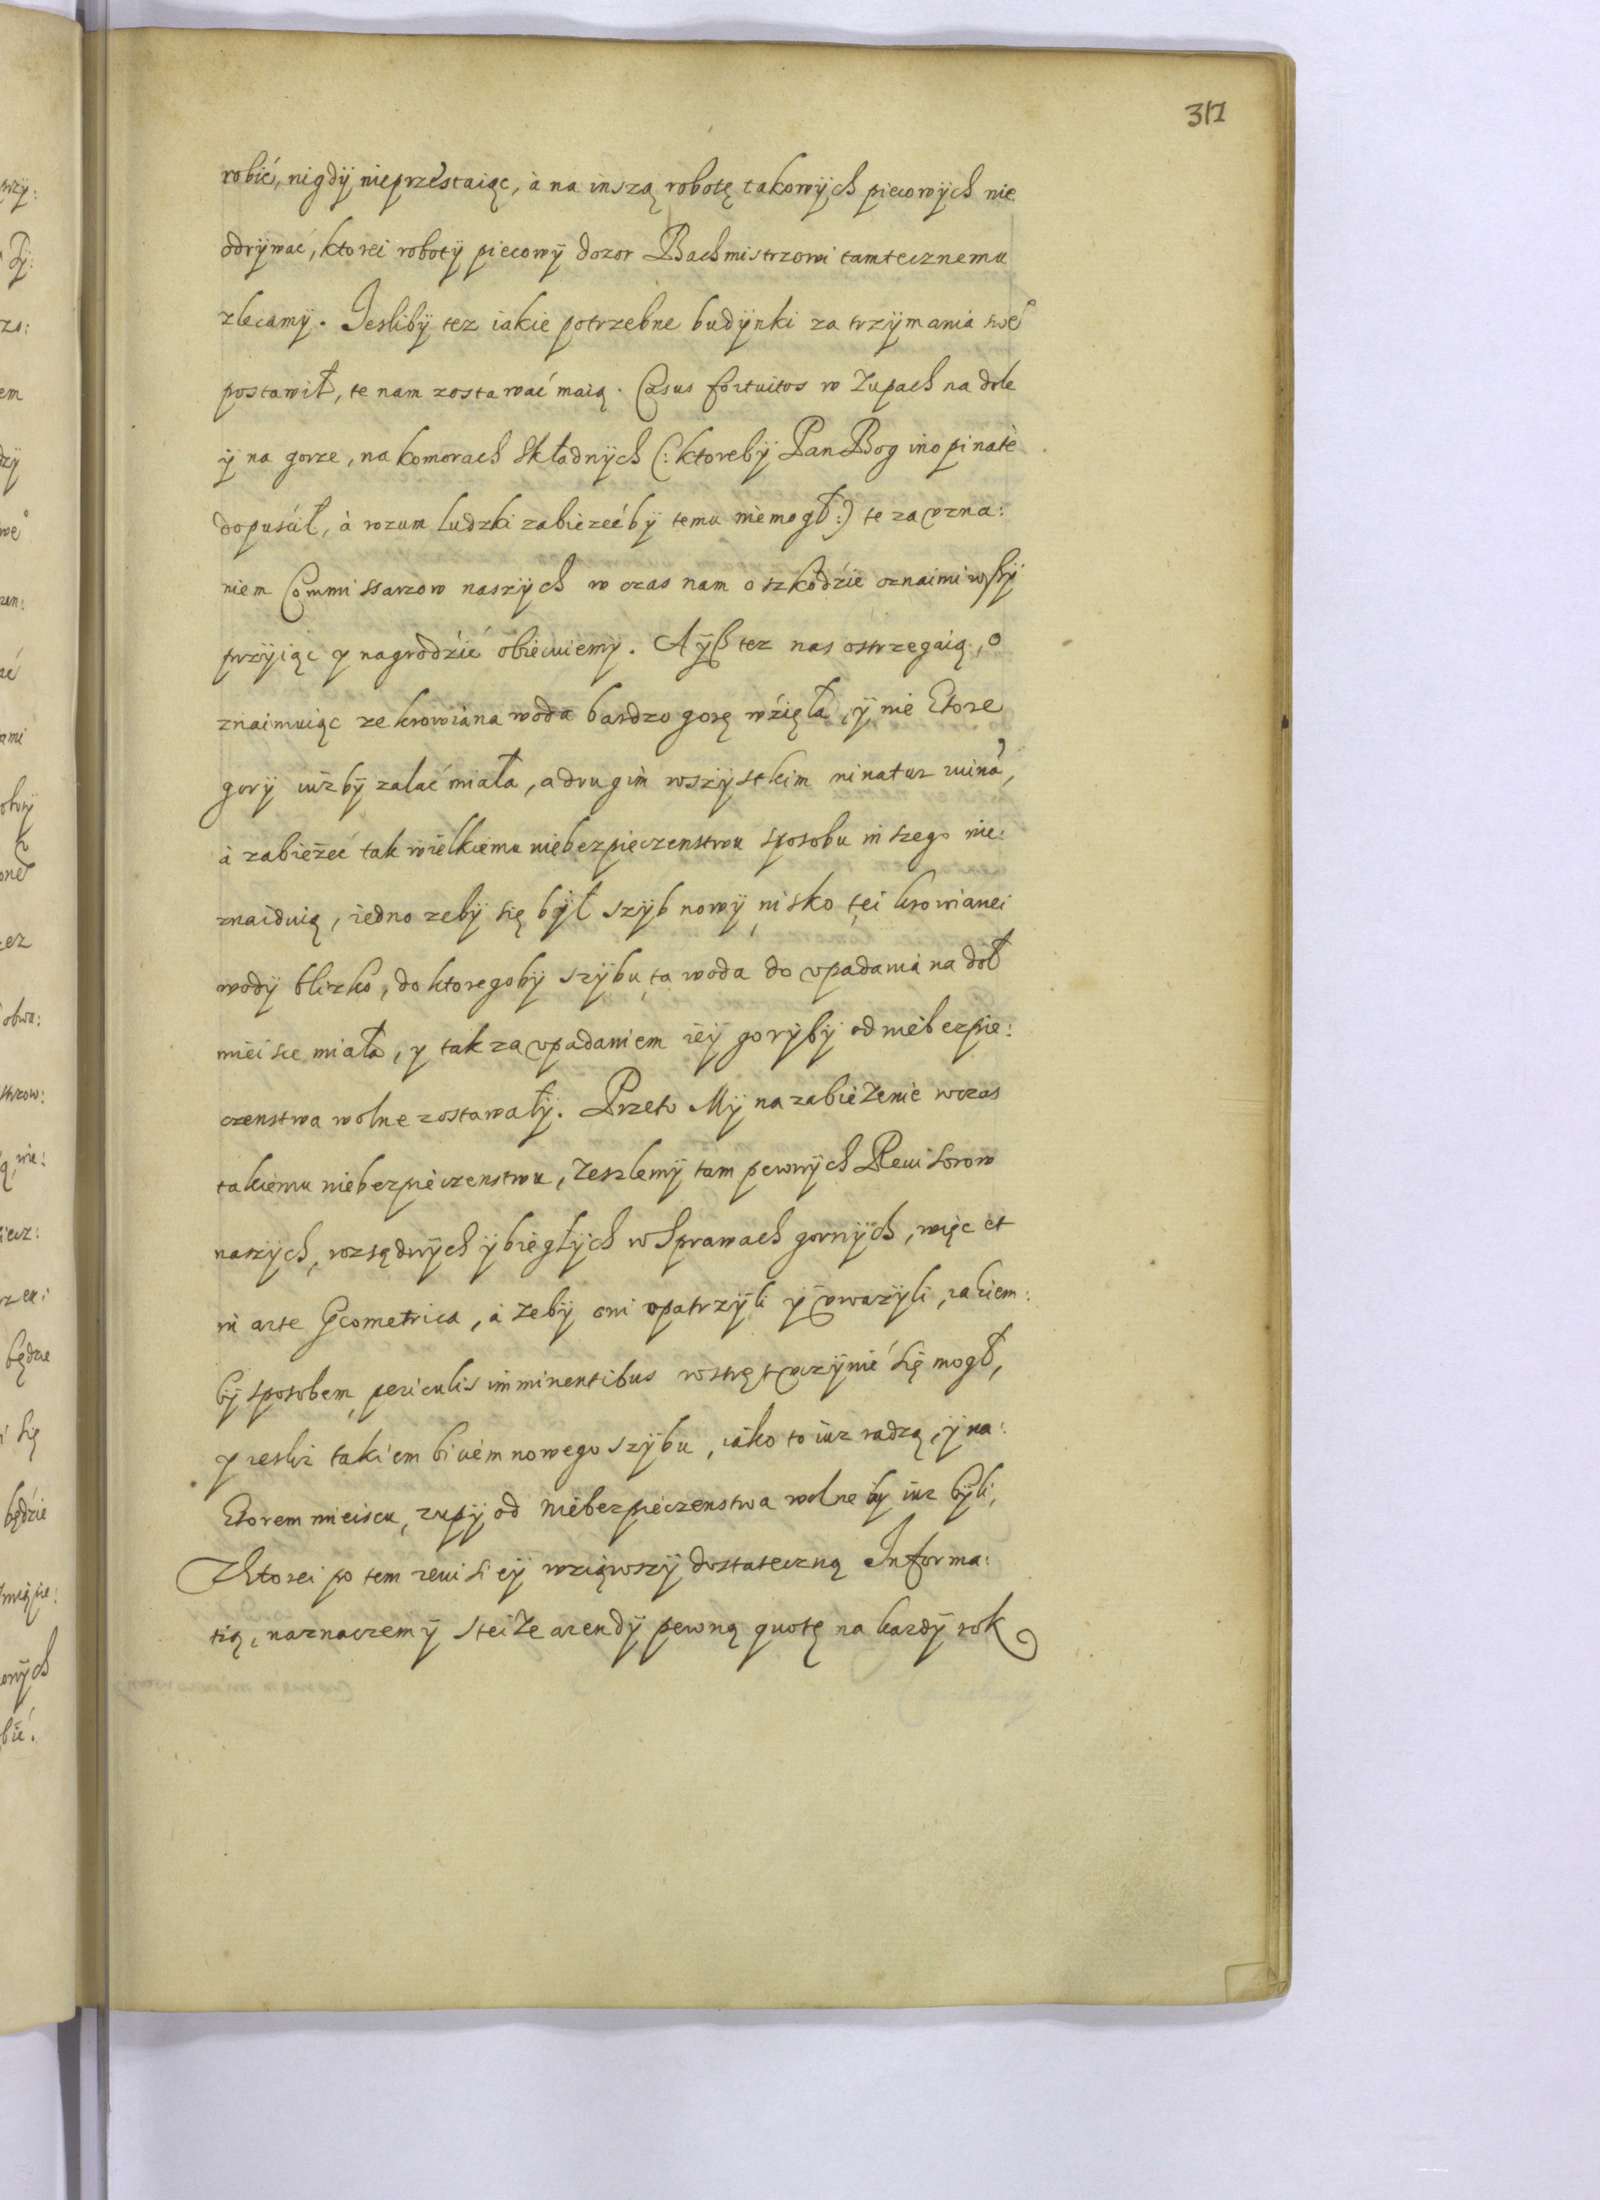 317
robić, nigdÿ nieprzestaiąc, à na inszą robotę takowÿch piecowÿch nie
odrÿwać, ktorei robotÿ piecowÿ dozor Bachmistrzowi tamtecznemu
zlecamÿ. Jeslibÿ tez iakie potrzebne budÿnki za trzÿmania swe°
postawił, te nam zostawać maią. Casus fortuitos w Zupach na dole
ÿ na gorze, na komorach Składnÿch (: ktorebÿ Pan Bog inopinatè
dopuścił, à rozum ludzki zabiezećbÿ temu niemogł :) te za vzna:
niem Commissarzow naszÿch w czas nam o szkodzie oznaimiwszÿ
przÿiąc y nagrodźić obiecuiemÿ. Aÿß tez nas ostrzegaią, o
znaimuiąc ze krowiana woda bardzo gorę wźięła, ÿ nie ktore
gorÿ iuż bÿ zalać miała, a drugim wszÿstkim minatur ruinã,
à zabieżeć tak wielkiemu niebezpieczenstwu sposobu inszego nie:
znaiduią, iedno zebÿ się bÿł szÿb nowÿ nisko tei krowianei
wodÿ blizko, do ktoregobÿ szÿbu ta woda do vpadania na doł
mieisce miała, y tak za vpadaniem ieÿ gorÿbÿ od niebezpie:
czenstwa wolne zostawałÿ. Przeto Mÿ na zabieżenie wczas
takiemu niebezpieczenstwu, Zeszlemÿ tam pewnÿch Reuisorow
naszÿch, rozsądnÿch ÿ biegłÿch w Sprawach gornÿch, więc et
in arte Geometrica, à żebÿ oni opatrzÿli ÿ vważÿli, iakiem:
bÿ sposobem, periculis imminentibus wstręt vczÿnić się mogł,
y iesliż takiem biciem nowego szÿbu, iako to iuz radzą, ÿ na:
ktorem mieiscu, zupÿ od niebezpieczenstwa wolne bÿ iuz bÿli,
Z ktorei po tem reuisieÿ wziąwszÿ dostateczną Informa:
tią, naznaczemÿ steiże arendÿ pewną quotę na kazdÿ rok